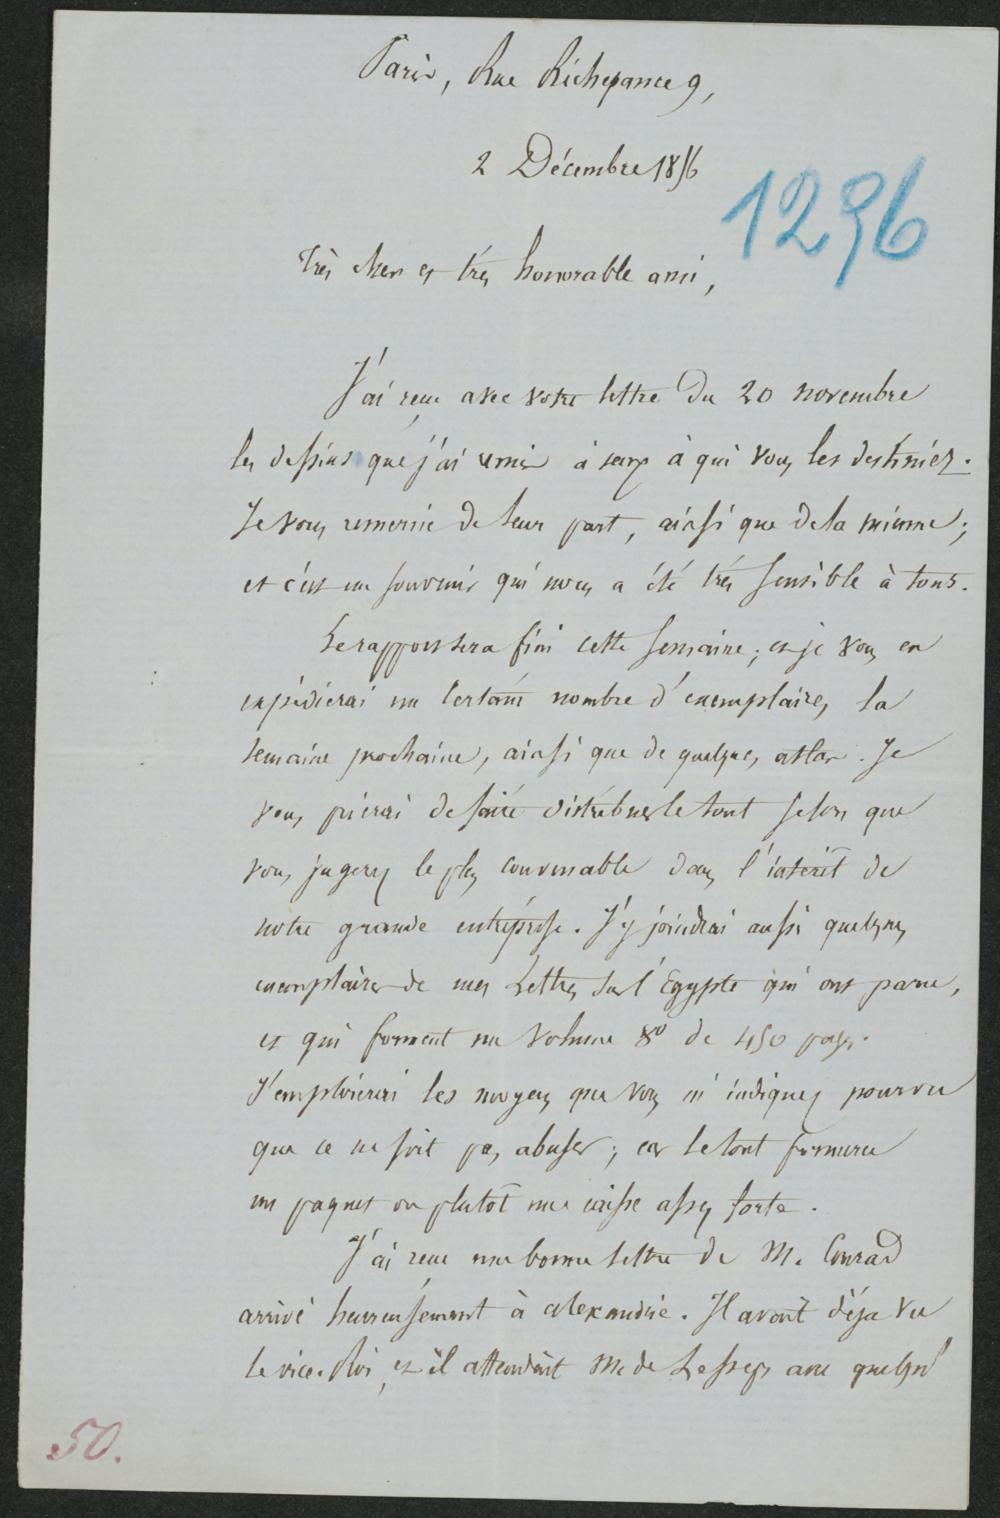 Paris, Rue Richepance 9,
2 Décembre 1856
1296
Très cher et très honorable ami,
J'ai reçu avec votre lettre du 20 novembre
les dessins que j'ai remis à ceux à qui vous les destiniez.
Je vous remercie de leur part, ainsi que de la mienne;
et c'est un souvenir qui nous a été très sensible à tous.
Le rapport sera fini cette semaine; et je vous en
expédierai un certain nombre d'exemplaires la
semaine prochaine, ainsi que de quelques atlas. Je
vous prierai de faire distribuer le tout selon que
vous jugerez le plus convenable dans l'intérêt de
notre grande entreprise. J'y joindrai aussi quelques
exemplaires de mes Lettres sur l'Egypte qui ont paru,
et qui forment un volume 8º de 450 pages.
J'emploierai les moyens que vous m'indiquez pourvu
que ce ne soit pas abuser; car le tout formera
un paquet ou plutôt une caisse assez forte.
J'ai reçu une bonne lettre de M. Conrad
arrivé heureusement à Alexandrie. Il avait déja vu
le vice-Roi, et il attendait M. de Lesseps avec quelqu'
50.